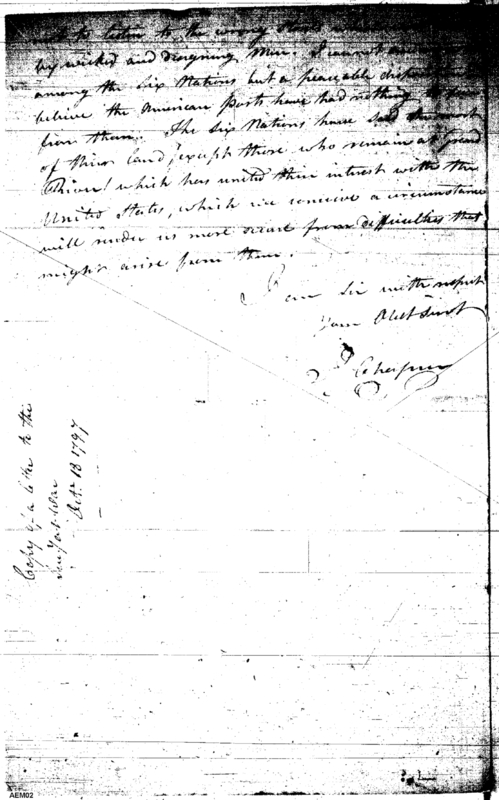 not to listen to the many stories
by wicked and designing Men. I cannot
among the Six Nations but a peaceable
believe the American Posts have had nothing to fear
from them. The Six Nations have sold the most
of their land, except those who remain at Grand
River which has united their interest with the
United States, which we conceive a circumstance
will render us more secure from difficulties that
might arise from them.
I am Sir with respect
your Obedt Servt
Chapin
Copy of a letter to the
Secy of War
Octr. 18 1797
AEM02